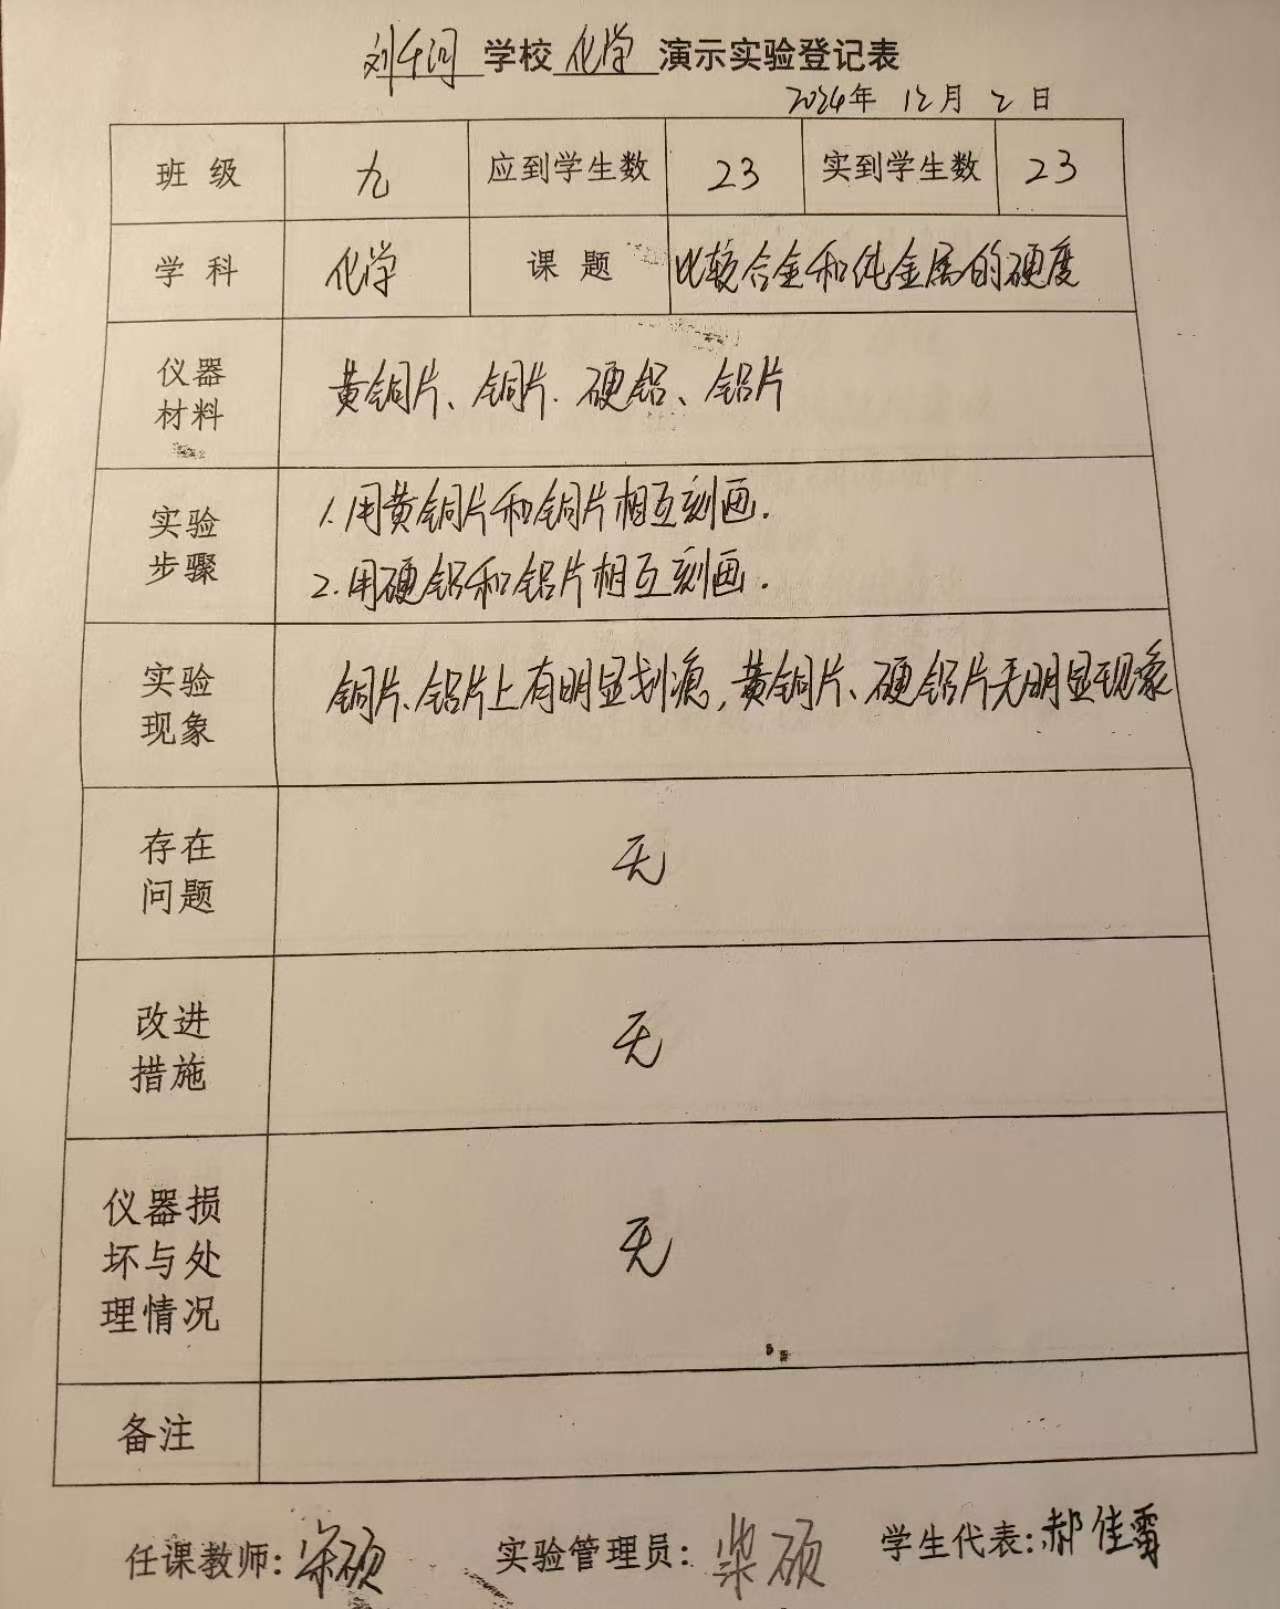 学校 化学 演示实验登记表
2024年 12月 2日
班级 九 应到学生数 23 实到学生数 23
学科 化学 课题 比较合金和纯金属的硬度
仪器
材料
黄铜片、铜片、硬铝、铝片
实验
步骤
1.用黄铜片和铜片相互刻画.
2.用硬铝和铝片相互刻画.
实验
现象
铜片、铝片上有明显划痕,黄铜片、硬铝片无明显现象
存在
问题
无
改进
措施
无
仪器损
坏与处
理情况
无
备注
任课教师: 实验管理员: 柴硕 学生代表: 郝佳